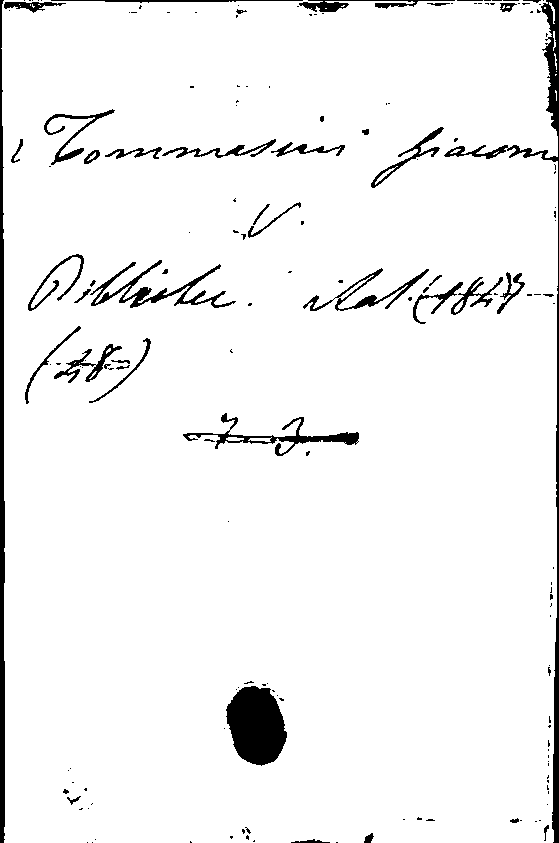 Tommasini Giacom
V.
Bibliotec. ital. (1847)
(48)
7 3.